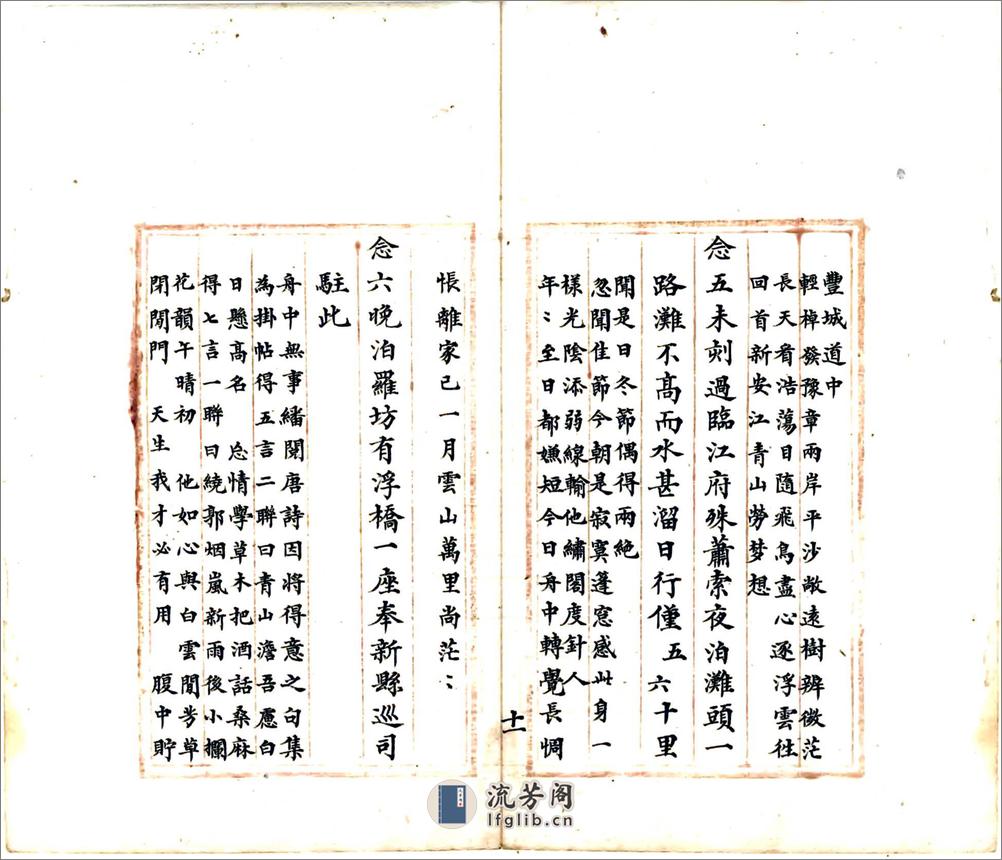 豐城道中
輕棹發豫章兩岸平沙敞遠樹辨微茫
長天看浩蕩日隨飛鳥盡心逐浮雲往
回首新安江青山勞梦想
念五未刻過臨江府殊蕭索夜泊灘頭一
路灘不高而水甚溜日行僅五六十里
聞是日冬節偶得兩絶
忽聞佳節今朝是寂寞蓬窓感此身一
樣光陰添弱線輸他繡閣度針人
年〻至日都嫌短今日舟中轉覺長惆
十一
悵離家已一月雲山萬里尚茫〻
念六晚泊羅坊有浮橋一座奉新縣巡司
駐此
舟中無事繙閱唐詩因將得意之句集
為掛帖得五言二聯曰青山澹吾慮白
日懸高名 忘情學草木把酒話桑麻
得七言一聯曰繞郭烟嵐新雨後小欄
花韻午晴初 他如心與白雲閒芳草
閉閒門 天生我才必有用 腹中貯
流芳阁
lfglib.cn